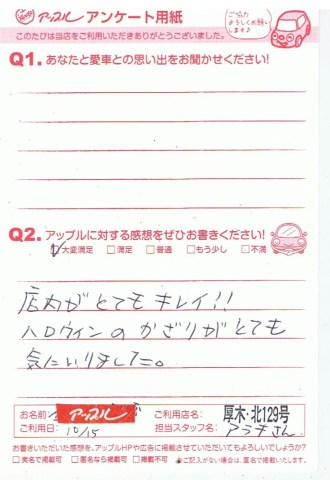 アップル アンケート用紙
ご協力
よろしくお願い
します♪
このたびは当店をご利用いただきありがとうございました。
Q1. あなたと愛車との思い出をお聞かせください!
Q2. アップルに対する感想をぜひお書きください!
☑大変満足 □満足 □普通 □もう少し □不満
店内がとてもキレイ!!
ハロウィンのかざりがとても
気にいりました。
お名前 アップル
ご利用店名: 厚木・北129号
ご利用日: 10/15
担当スタッフ名: アラチさん
お書きいただいた感想を、アップルHPや広告に掲載させていただいてもよろしいでしょうか?
□実名で掲載可 □匿名なら掲載可 □掲載不可 ※ご記入がない場合は、匿名で掲載いたします。